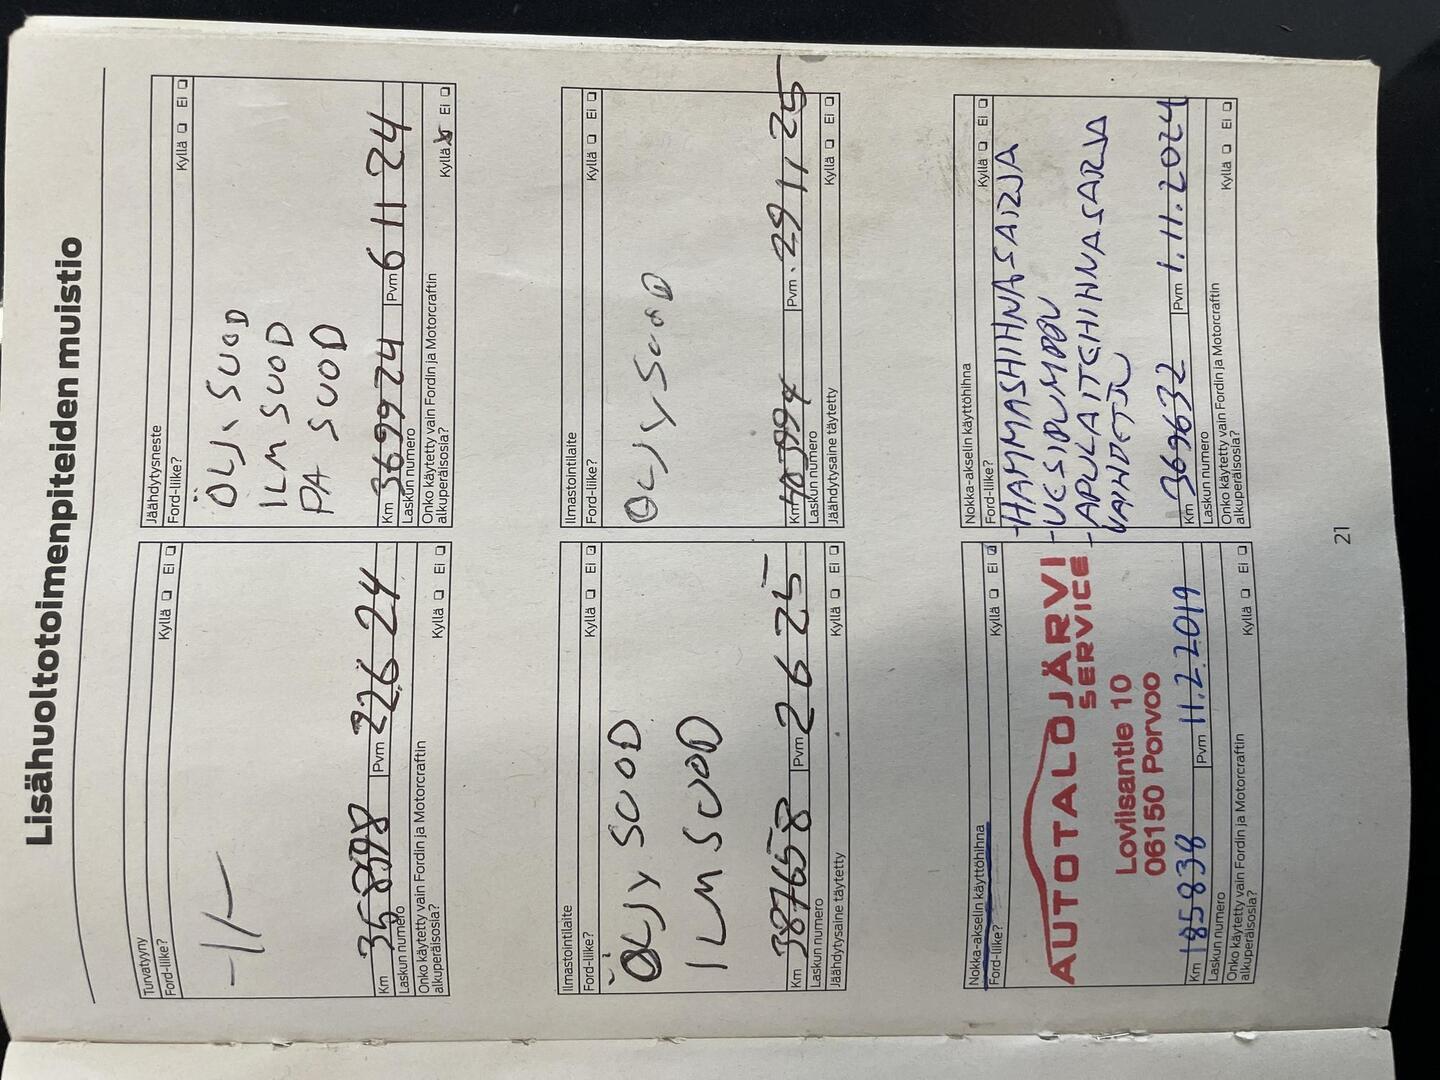 Lisähuoltotoimenpiteiden muistio
Turvatyyny
Ford-liike? Kyllä ❏ Ei ❏
-1/-
Km 35 898 Pvm 22 6 24
Laskun numero
Onko käytetty vain Fordin ja Motorcraftin
alkuperäisosia? Kyllä ❏ Ei ❏
Jäähdytysneste
Ford-liike? Kyllä ❏ Ei ❏
ÖLJ. SUOD
ILM SUOD
PA SUOD
Km 369924 Pvm 6 11 24
Laskun numero
Onko käytetty vain Fordin ja Motorcraftin
alkuperäisosia? Kyllä ☒ Ei ❏
Ilmastointilaite
Ford-liike? Kyllä ❏ Ei ❏
ÖLJY SUOD
ILM SUOD
Km 387658 Pvm 2 6 25
Laskun numero
Jäähdytysaine täytetty Kyllä ❏ Ei ❏
Ilmastointilaite
Ford-liike? Kyllä ❏ Ei ❏
ÖLJY SUOD
Km Pvm 29 11 25
Laskun numero
Jäähdytysaine täytetty Kyllä ❏ Ei ❏
Nokka-akselin käyttöhihna
Ford-liike? Kyllä ❏ Ei ❏
AUTOTALOJÄRVI
SERVICE
Loviisantie 10
06150 Porvoo
Km 185838 Pvm 11.2.2019
Laskun numero
Onko käytetty vain Fordin ja Motorcraftin
alkuperäisosia? Kyllä ❏ Ei ❏
Nokka-akselin käyttöhihna
Ford-liike? Kyllä ❏ Ei ❏
-HAMMASHIHNASARJA
-VESIPUMPPU
-APULAITEHIHNASARJA
VAIHDETTU
Km 369632 Pvm 1.11.2024
Laskun numero
Onko käytetty vain Fordin ja Motorcraftin
alkuperäisosia? Kyllä ❏ Ei ❏
21